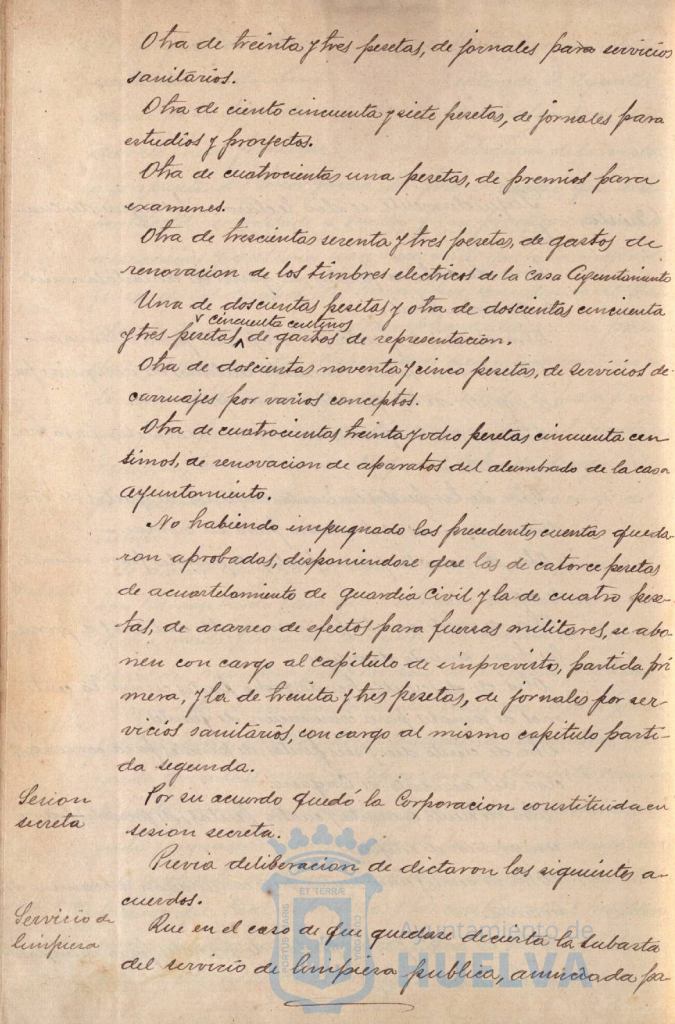 Otra de treinta y tres pesetas, de jornales para servicios
sanitarios.
Otra de ciento cincuenta y siete pesetas, de jornales para
estudios y proyectos.
Otra de cuatrocientas una pesetas, de premios para
examenes.
Otra de trescientas serenta y tres pesetas, de gastos de
renovacion de los timbres electricos de la casa Ayuntamiento
Una de doscientas pesetas y otra de doscientas cincuenta
cincuenta centimos
y tres pesetas, de gastos de representacion.
Otra de doscientas noventa y cinco pesetas, de servicios de
carruajes por varios conceptos.
Otra de cuatrocientas treinta y ocho pesetas cincuenta cen
timos, de renovacion de aparatos del alumbrado de la casa
Ayuntamiento.
No habiendo impugnado las precedentes cuentas queda-
ron aprobadas, disponiendose que las de catorce pesetas
de acuartelamiento de guardia Civil y la de cuatro pese-
tas, de acarreo de efectos para fuersas militares, se abo-
nen con cargo al capitulo de imprevisto, partida pri
mera, y la de treinta y tres pesetas, de jornales por ser-
vicios sanitarios, con cargo al mismo capitulo parti-
da segunda.
Sesion
secreta
Por su acuerdo quedó la Corporacion constituida en
sesion secreta.
Previa deliberacion de dictaron los siguientes a-
cuerdos.
Servicio de
limpiera
Que en el caso de que quedase decierta la subasta
del servicio de limpiera publica, anunciada pa-
PORTUS MARIS
ET TERRÆ
CUSTODIA
Ayuntamiento de
HUELVA